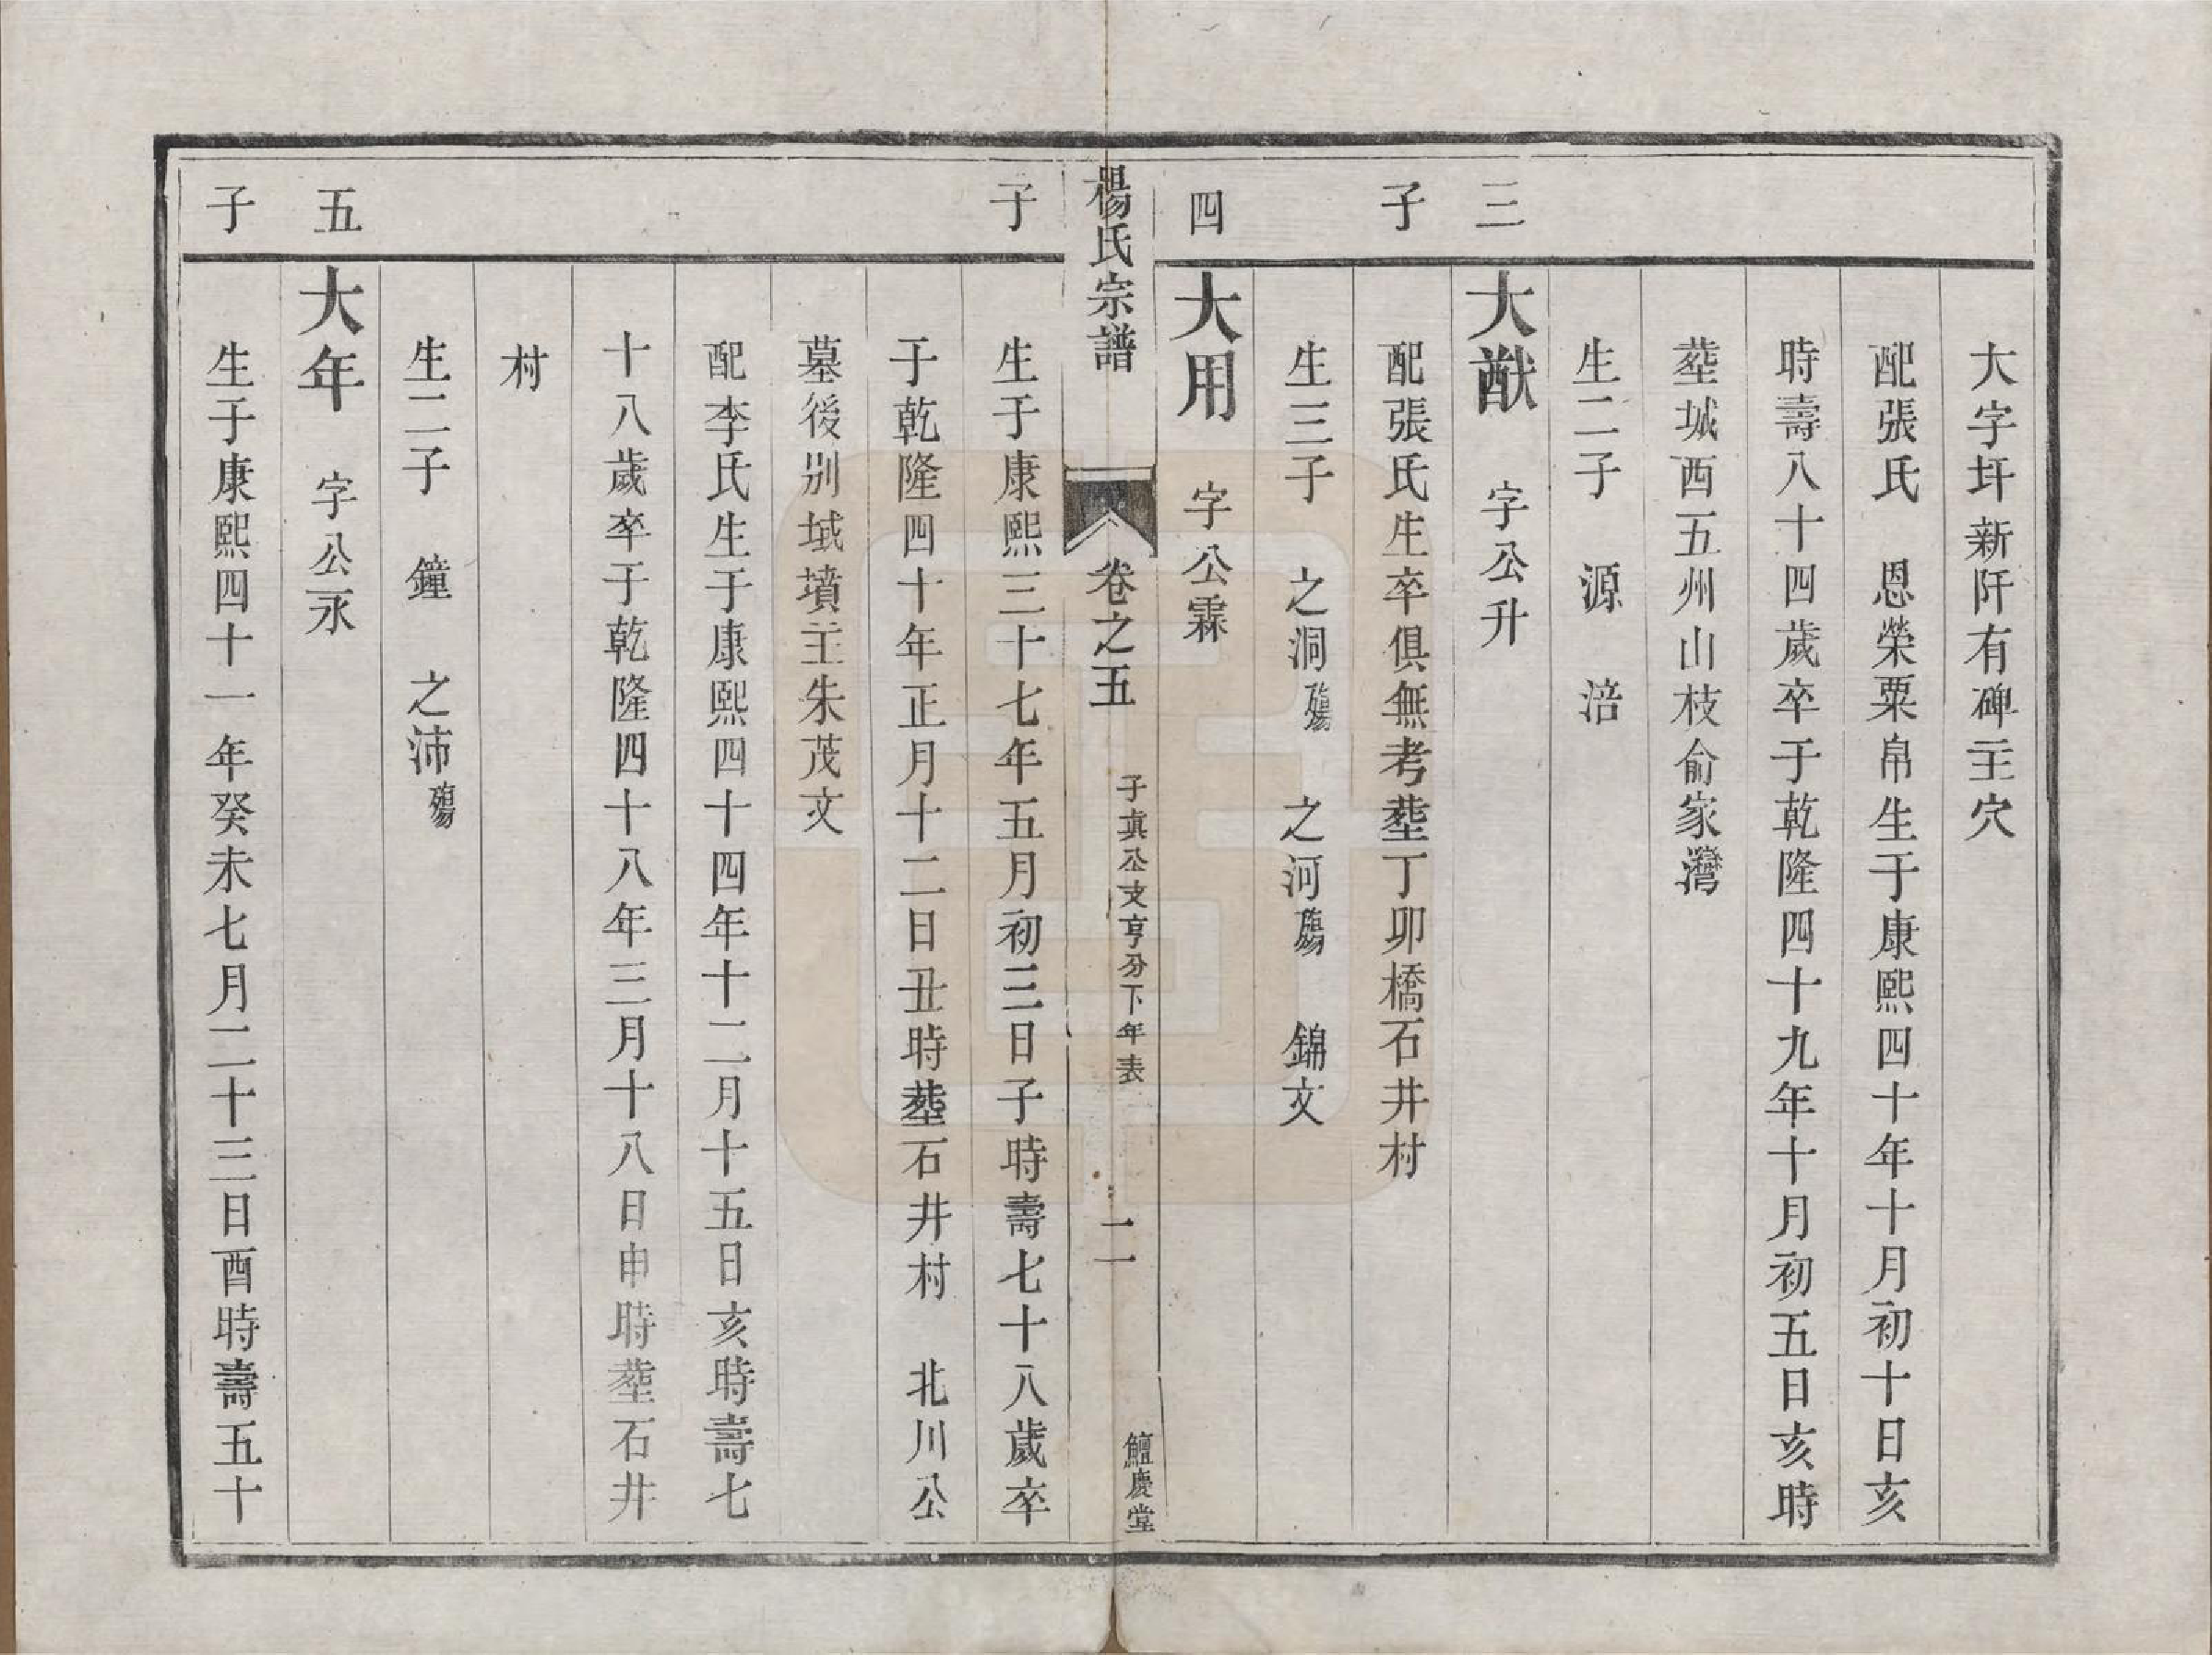 大字圩新阡有碑主穴
配張氏　恩榮粟帛生于康熙四十年十月初十日亥
時壽八十四歲卒于乾隆四十九年十月初五日亥時
塟城西五州山枝俞家灣
生二子　源　涪
三
大猷　字公升
子
配張氏生卒俱無考塟丁卯橋石井村
生三子　之洞殤　之河殤　錦文
四
大用　字公霖
楊氏宗譜　卷之五　子眞公支亨分下年表　二　鱣慶堂
子
生于康熙三十七年五月初三日子時壽七十八歲卒
于乾隆四十年正月十二日丑時塟石井村　北川公
墓後别域墳主朱茂文
配李氏生于康熙四十四年十二月十五日亥時壽七
十八歲卒于乾隆四十八年三月十八日申時塟石井
村
生二子　鐘　之沛殤
五
大年　字公永
子
生于康熙四十一年癸未七月二十三日酉時壽五十